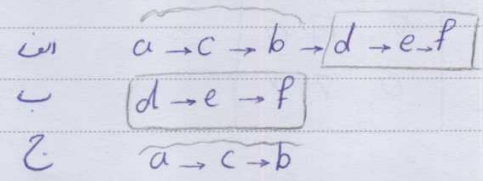 الف a → c → b → d → e → f
ب d → e → f
ج a → c → b